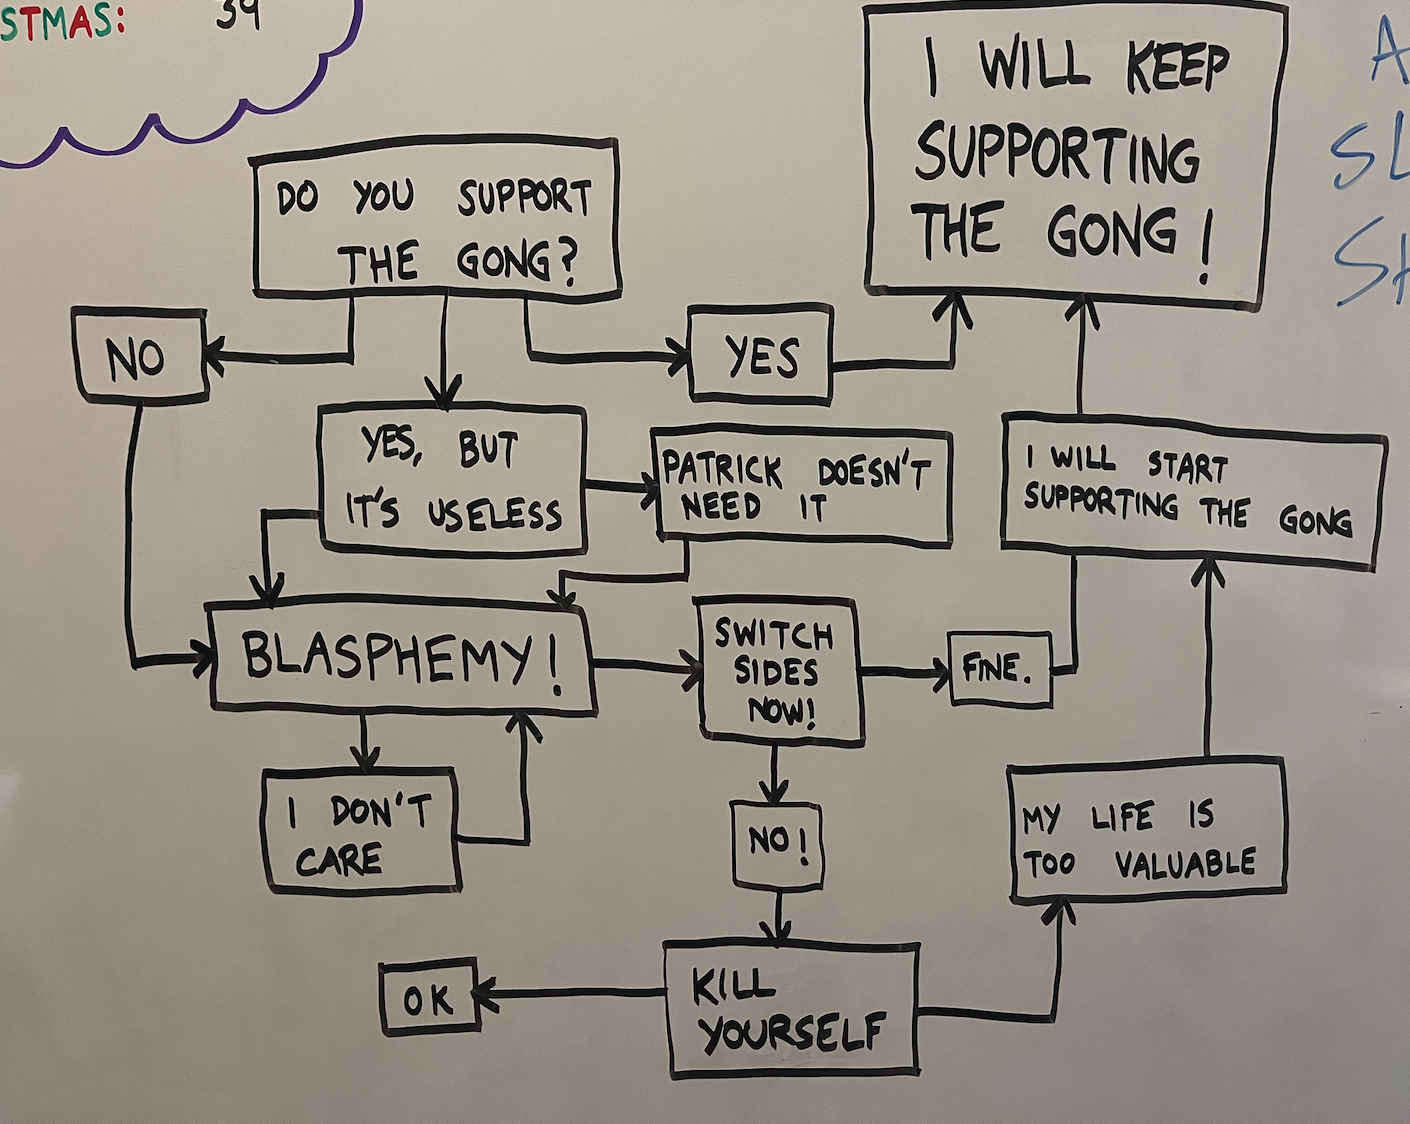 STMAS: 39
DO YOU SUPPORT
THE GONG?
I WILL KEEP
SUPPORTING
THE GONG!
NO
YES
YES, BUT
IT'S USELESS
PATRICK DOESN'T
NEED IT
I WILL START
SUPPORTING THE GONG
BLASPHEMY!
SWITCH
SIDES
NOW!
FINE.
I DON'T
CARE
NO!
MY LIFE IS
TOO VALUABLE
KILL
YOURSELF
OK
A
SL
SH